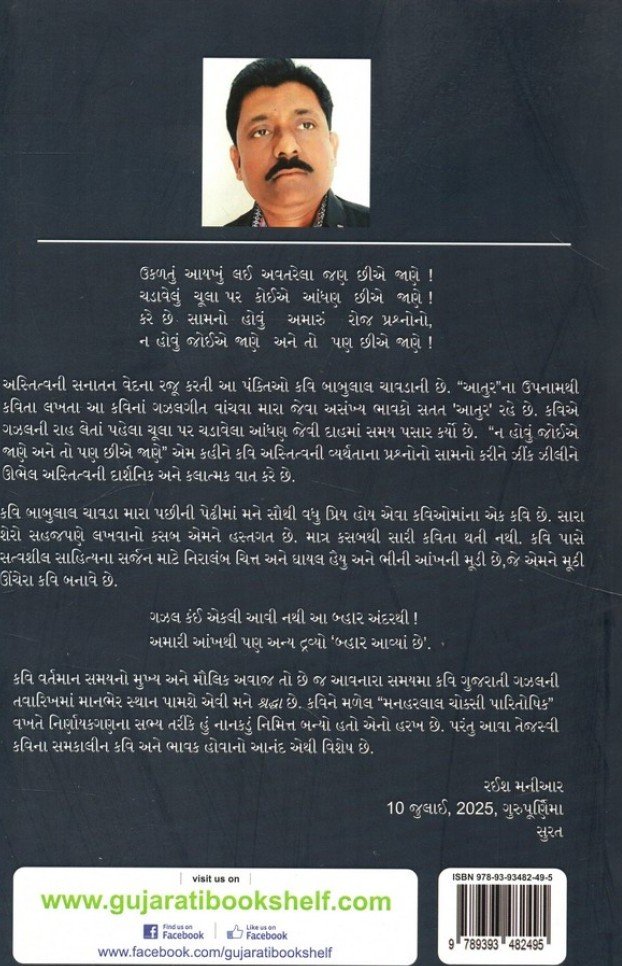 ઉકળતું આયખું લઈ અવતરેલા જણ છીએ જાણે !
ચડાવેલું ચૂલા પર કોઈએ આંધણ છીએ જાણે !
કરે છે સામનો હોવું અમારું રોજ પ્રશ્નોનો,
ન હોવું જોઈએ જાણે અને તો પણ છીએ જાણે !
અસ્તિત્વની સનાતન વેદના રજૂ કરતી આ પંક્તિઓ કવિ બાબુલાલ ચાવડાની છે. “આતુર”ના ઉપનામથી
કવિતા લખતા આ કવિનાં ગઝલગીત વાંચવા મારા જેવા અસંખ્ય ભાવકો સતત 'આતુર' રહે છે. કવિએ
ગઝલની રાહ લેતાં પહેલા ચૂલા પર ચડાવેલા આંધણ જેવી દાહમાં સમય પસાર કર્યો છે. “ન હોવું જોઈએ
જાણે અને તો પણ છીએ જાણે” એમ કહીને કવિ અસ્તિત્વની વ્યર્થતાના પ્રશ્નોનો સામનો કરીને ઝીંક ઝીલીને
ઊભેલ અસ્તિત્વની દાર્શનિક અને કલાત્મક વાત કરે છે.
કવિ બાબુલાલ ચાવડા મારા પછીની પેઢીમાં મને સૌથી વધુ પ્રિય હોય એવા કવિઓમાંના એક કવિ છે. સારા
શેરો સહજપણે લખવાનો કસબ એમને હસ્તગત છે. માત્ર કસબથી સારી કવિતા થતી નથી. કવિ પાસે
સત્વશીલ સાહિત્યના સર્જન માટે નિરાલંબ ચિત્ત અને ઘાયલ હૈયુ અને ભીની આંખની મૂડી છે,જે એમને મૂઠી
ઊંચેરા કવિ બનાવે છે.
ગઝલ કંઈ એકલી આવી નથી આ બહાર અંદરથી !
અમારી આંખથી પણ અન્ય દ્રવ્યો ‘બહાર આવ્યાં છે’.
કવિ વર્તમાન સમયનો મુખ્ય અને મૌલિક અવાજ તો છે જ આવનારા સમયમા કવિ ગુજરાતી ગઝલની
તવારિખમાં માનભેર સ્થાન પામશે એવી મને શ્રદ્ધા છે. કવિને મળેલ “મનહરલાલ ચોક્સી પારિતોષિક”
વખતે નિર્ણાયકગણના સભ્ય તરીકે હું નાનકડું નિમિત્ત બન્યો હતો એનો હરખ છે. પરંતુ આવા તેજસ્વી
કવિના સમકાલીન કવિ અને ભાવક હોવાનો આનંદ એથી વિશેષ છે.
રઈશ મનીઆર
10 જુલાઈ, 2025, ગુરુપૂર્ણિમા
સુરત
visit us on
www.gujaratibookshelf.com
Find us on Facebook
Like us on Facebook
www.facebook.com/gujaratibookshelf
ISBN 978-93-93482-49-5
9 789393 482495